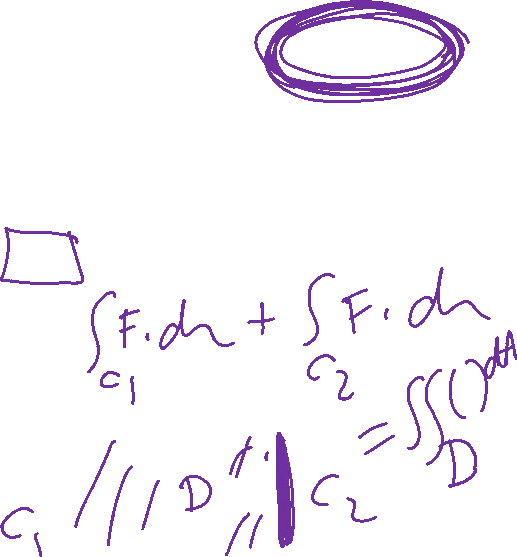 ∫_{C_1} F · dr + ∫_{C_2} F · dr
= ∬_D ( ) dA
C_1 D C_2